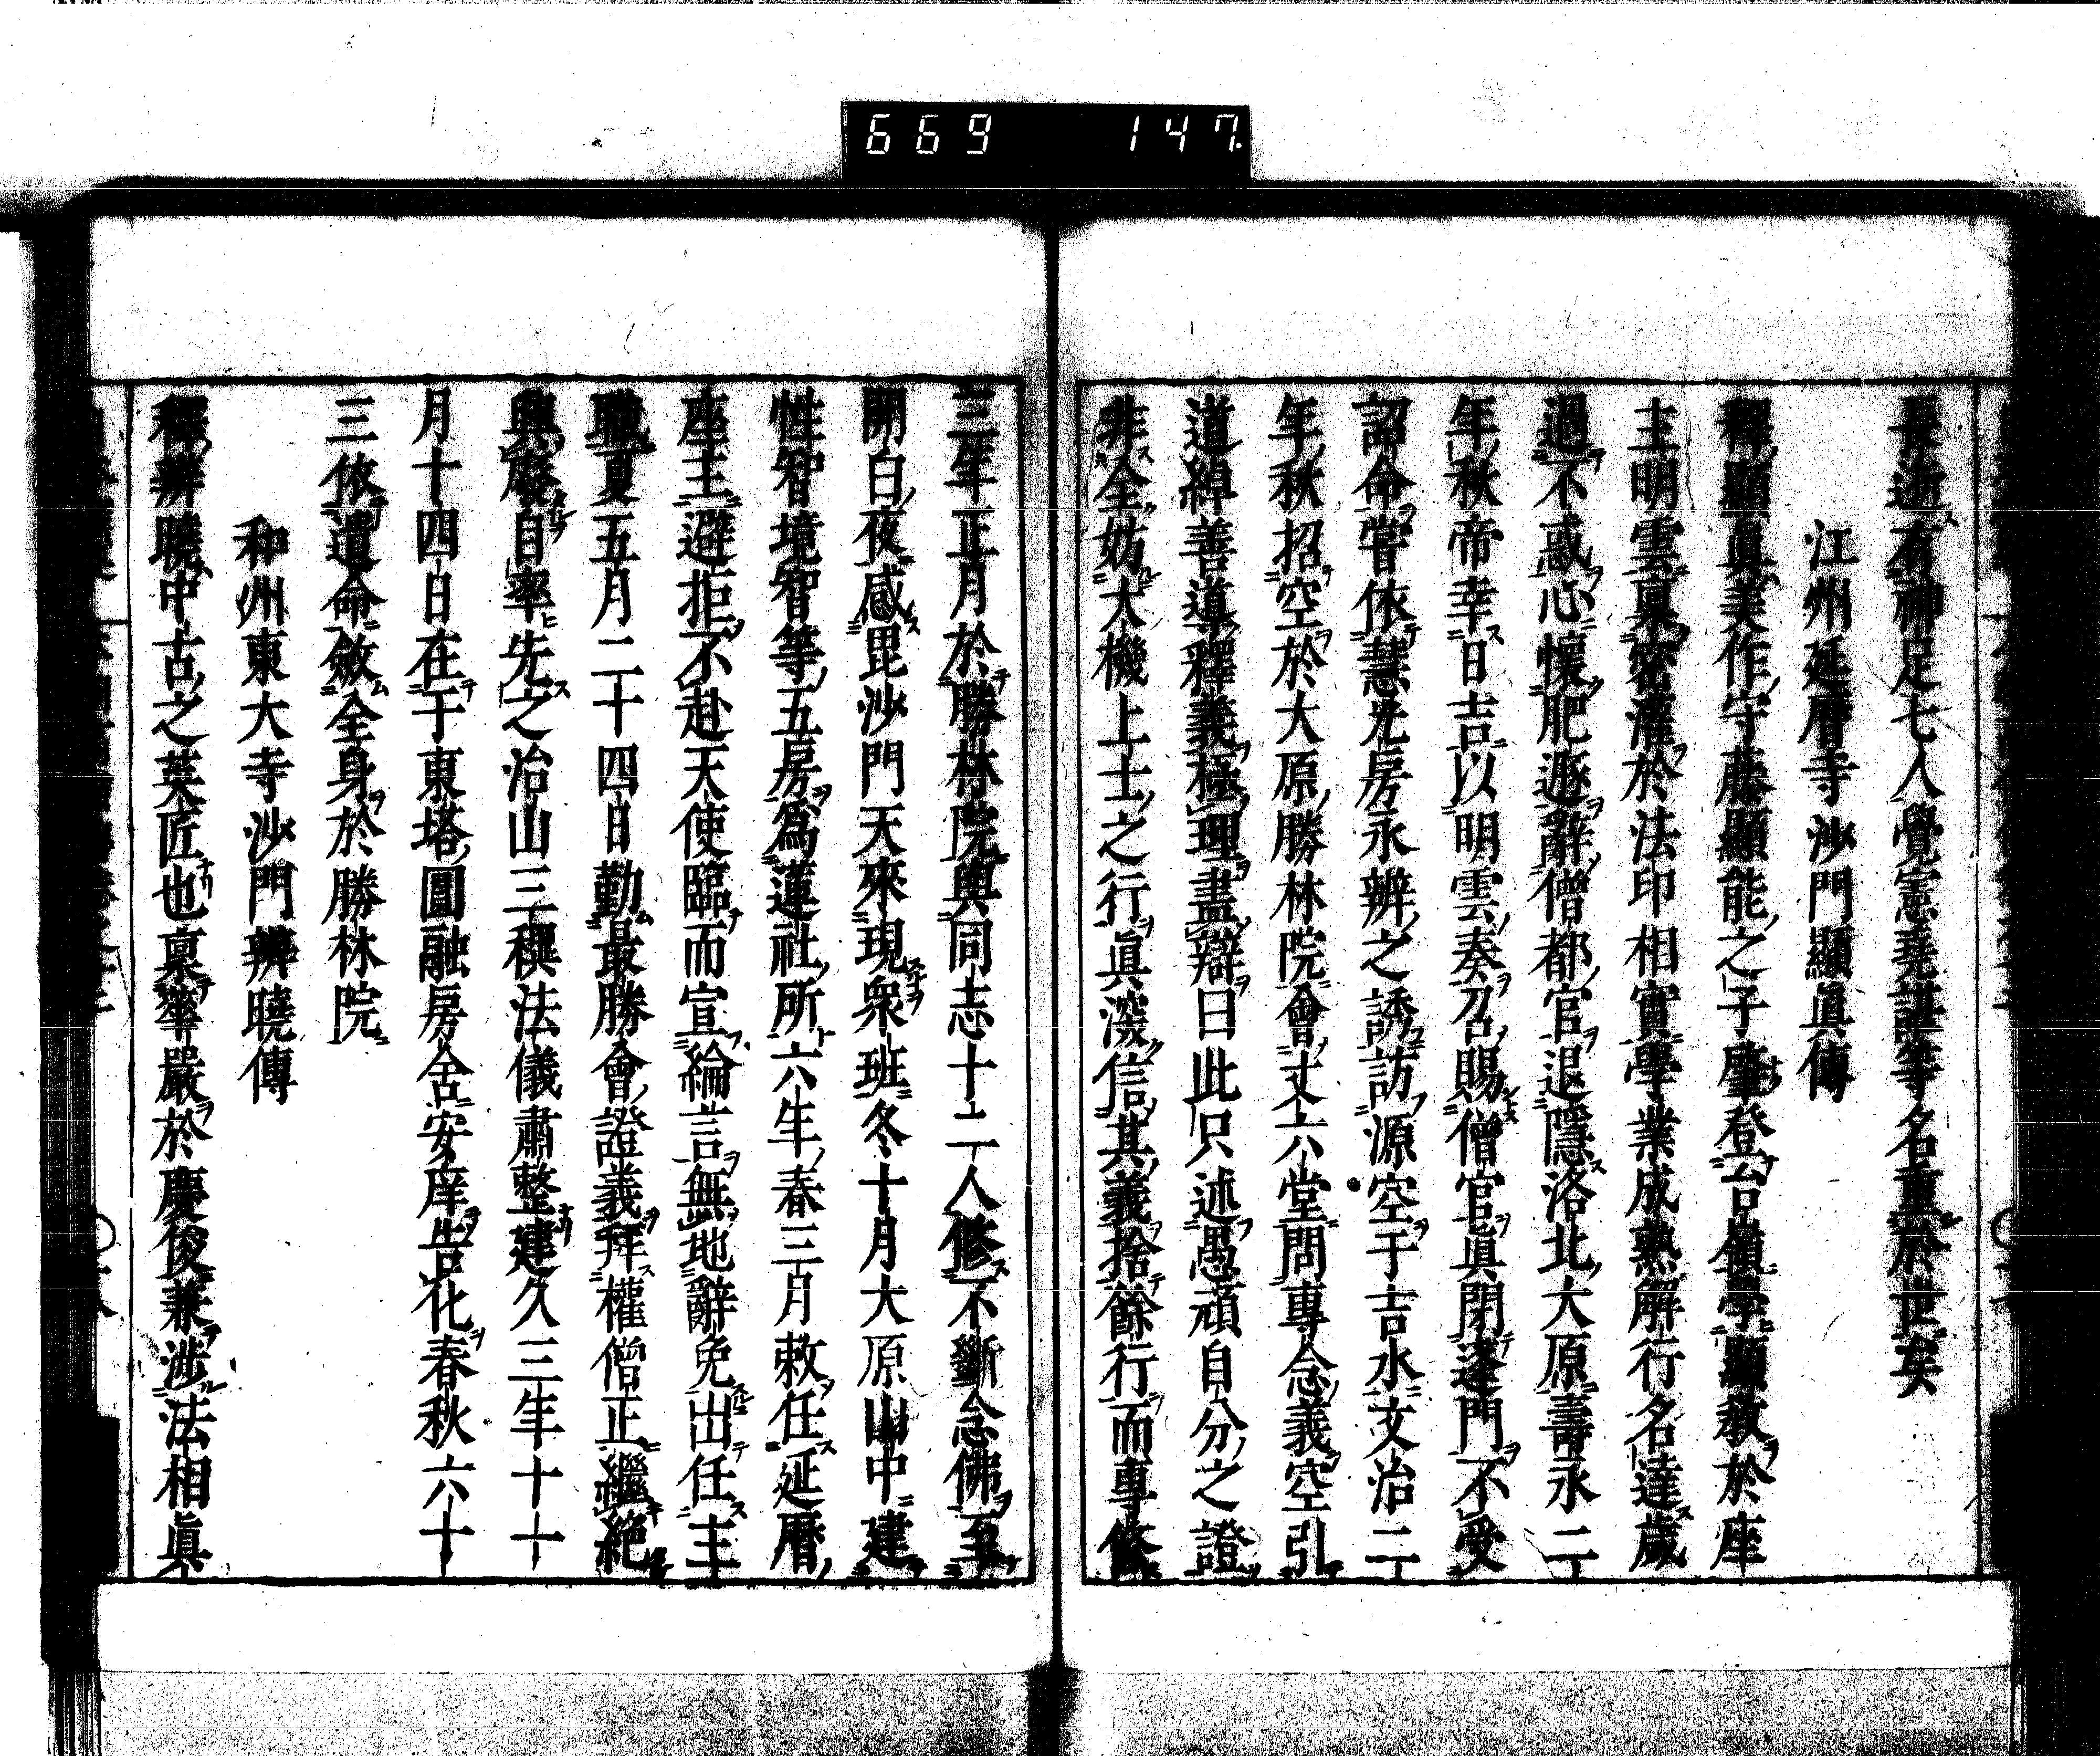 669 147
長逝有神足七人覺憲堯諶等名重於世矣
江州延曆寺沙門顯眞傳
釋顯眞美作守藤顯能之子肇登台嶺學顯教於座
主明雲稟密灌於法印相實學業成熟解行名達歲
過不惑心懷肥遯辭僧都官退隱洛北大原壽永二
年秋帝幸日吉以明雲奏召賜僧官眞閉蓬門不受
詔命嘗依慧光房永辨之誘訪源空于吉水文治二
年秋招空於大原勝林院會丈六堂問專念義空引
道綽善導釋義極理盡辯曰此只述愚頑自分之證
非全妨大機上士之行眞深信其義捨餘行而專修
三年正月於勝林院與同志十二人修不斷念佛至
開白夜感毘沙門天來現衆班冬十月大原山中建
性智境智等五房爲蓮社所六年春三月敕任延曆
座主避拒不赴天使臨而宣綸言無地辭免出任主
職夏五月二十四日勤最勝會證義拜權僧正繼絕
興廢自率先之治山三稘法儀肅整建久三年十一
月十四日在于東塔圓融房含安庠告化春秋六十
三依遺命斂全身於勝林院
和州東大寺沙門辨曉傳
釋辨曉中古之英匠也稟華嚴於慶俊兼涉法相眞